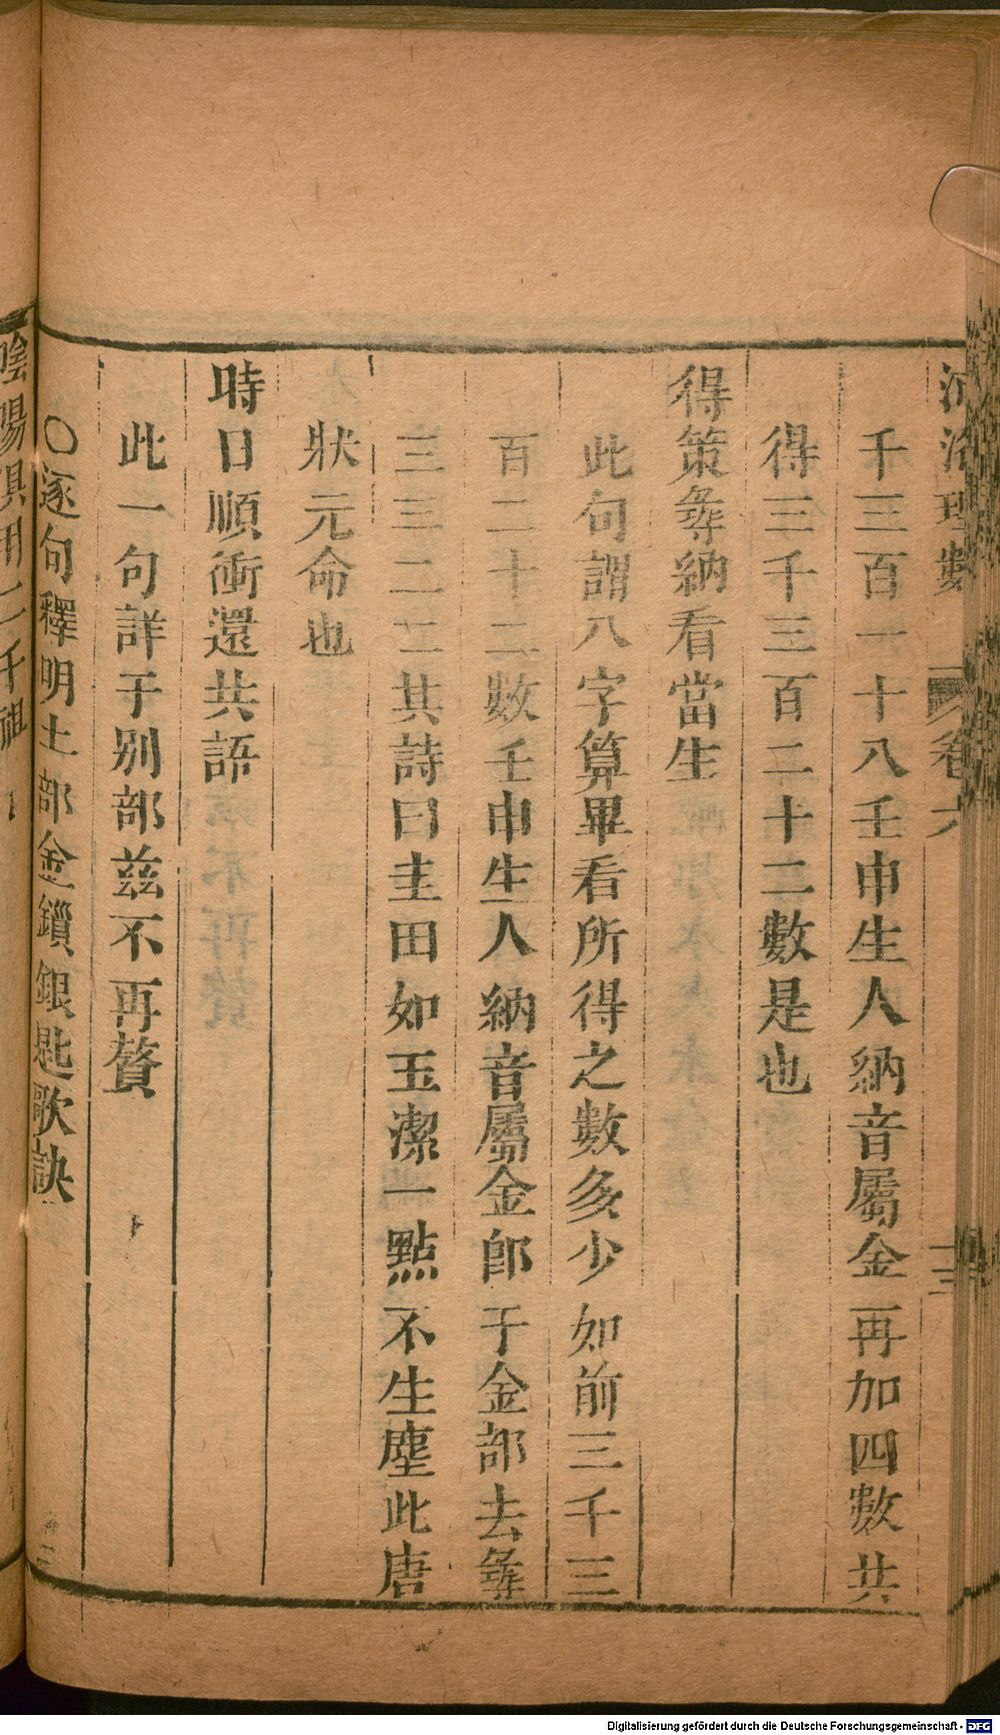 河洛理數 卷六
千三百一十八壬申生人納音屬金再加四數共
得三千三百二十二數是也
得策彝納看當生
此句謂八字算畢看所得之數多少如前三千三
百二十二數壬申生人納音屬金郎于金部去彝
三三二二其詩曰圭田如玉潔一點不生塵此唐
狀元命也
時日順衝還共語
此一句詳于别部兹不再贅
〇逐句釋明土部金鎖銀匙歌訣
陰陽俱用二千祖
Digitalisierung gefördert durch die Deutsche Forschungsgemeinschaft - DFG